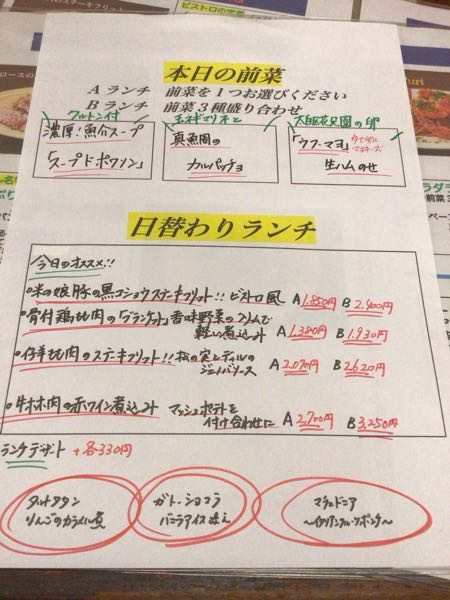 本日の前菜
Aランチ 前菜を1つお選びください
Bランチ 前菜3種盛り合わせ
クルトン付
濃厚!魚介スープ
「スープドポワソン」
玉ネギマリネと
真魚周の
カルパッチョ
太白花見園の卵
「ウフ・マヨ」
マヨネーズ
生ハムのせ
日替わりランチ
今日のオススメ!!
・米の娘豚の黒コショウステーキフリット!! ビストロ風 A 1.850円 B 2.400円
・骨付鶏モモ肉の「ブランケット」香味野菜のクリームで
軽い煮込み A 1.380円 B 1.930円
・仔羊モモ肉のステーキフリット!! 松の実とディルの
ジェノバソース A 2.070円 B 2.620円
・牛ホホ肉の赤ワイン煮込み マッシュポテトを
付け合わせに A 2,700円 B 3,250円
ランチデザート +各330円
タルトタタン
りんごのカラメル煮
ガトーショコラ
バニラアイス添え
マチェドニア
~イタリアンフルーツポンチ~